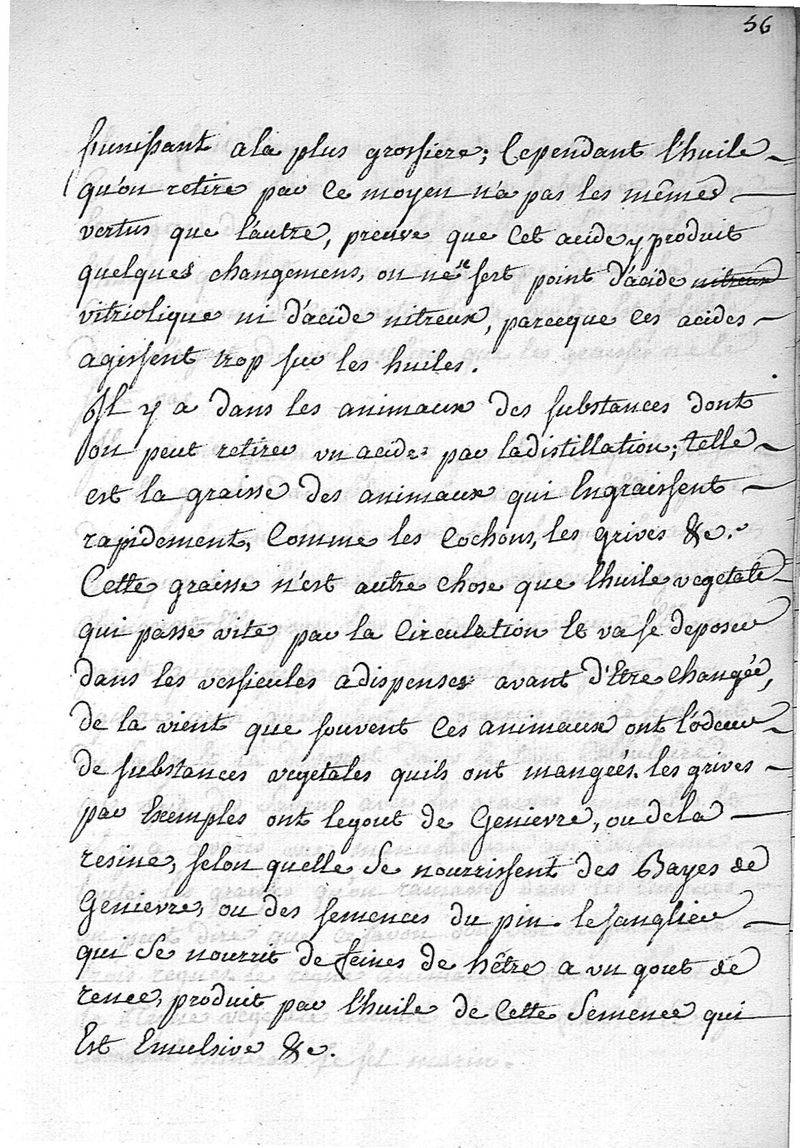 56
s'unissant a la plus grossiere; Cependant l'huile
qu'on retire par ce moyen n'a pas les mêmes
vertus que l'autre, preuve que cet acide y produit
quelques changemens, on ne se sert point d'acide nitreux
vitriolique ni d'acide nitreux, parceque ces acides
agissent trop sur les huiles.
Il y a dans les animaux des substances dont
on peut retirer un acide par la distillation; telle
est la graisse des animaux qui Engraissent
rapidement, Comme les Cochons, les grives &c.
Cette graisse n'est autre chose que l'huile vegetale
qui passe vite par la Circulation Et va se deposer
dans les vesficules adispenses avant d'Etre changée,
de la vient que souvent Ces animaux ont l'odeur
de substances vegetales quils ont mangées. les grives
par Exemples ont le gout de Genievre, ou de la
resine, selon quelle se nourrissent des Bayes de
Genievre, ou des semences du pin. le sanglier
qui se nourrit de feines de hêtre a un gout de
rence, produit par l'huile de Cette Semence qui
Est Emulsive &c.